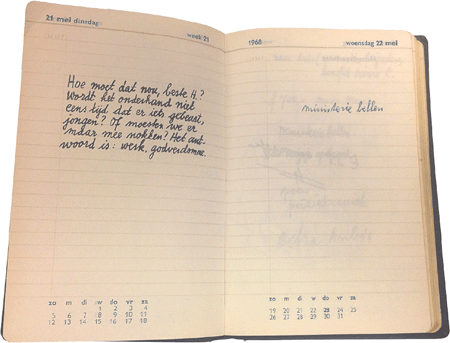 21 mei dinsdag
week 21
Hoe moet dat nou, beste H.?
Wordt het onderhand niet
eens tijd, dat er iets gebeurt,
jongen? Of moesten we er
maar mee nokken? Het ant-
woord is: werk, godverdomme.
zo m d w do vr za
1 2 3 4
5 6 7 8 9 10 11
12 13 14 15 16 17 18
1968
woensdag 22 mei
ministerie bellen
zo m di w do vr za
19 20 21 22 23 24 25
26 27 28 29 30 31